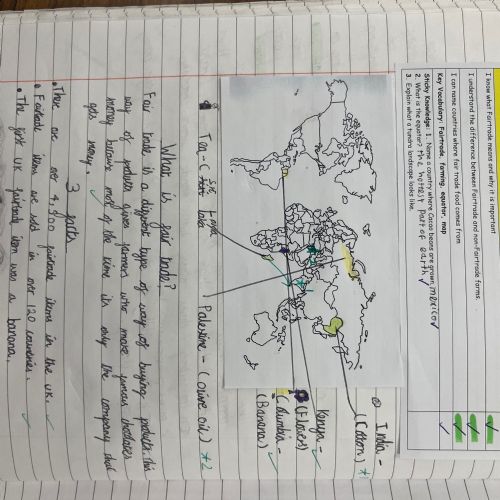 I know what Fairtrade means and why it is important
I understand the difference between Fairtrade and non-Fairtrade farms.
I can name countries where fair trade food comes from
Key Vocabulary: Fairtrade, farming, equator, map
Sticky Knowledge: 1. Name a country where Cacao beans are grown. mexico
2. What is the equator? the hottest part of earth
3. Explain what a tundra landscape looks like.
India -
(Cotton) *1
Kenya -
(Flowers)
Columbia -
(Banana)
Tea - (
Sri Lanka
Palestine - (Olive oil) *2
What is fair trade?
Fair trade is a different type of way of buying products. This
way of products gives farmers who make famous chocolates
money because most of the time its only the company that
gets money.
3 facts
• There are over 4,500 fairtrade items in the UK.
• Fairtrade items are sold in over 120 countries.
• The first UK fairtrade item was a banana.